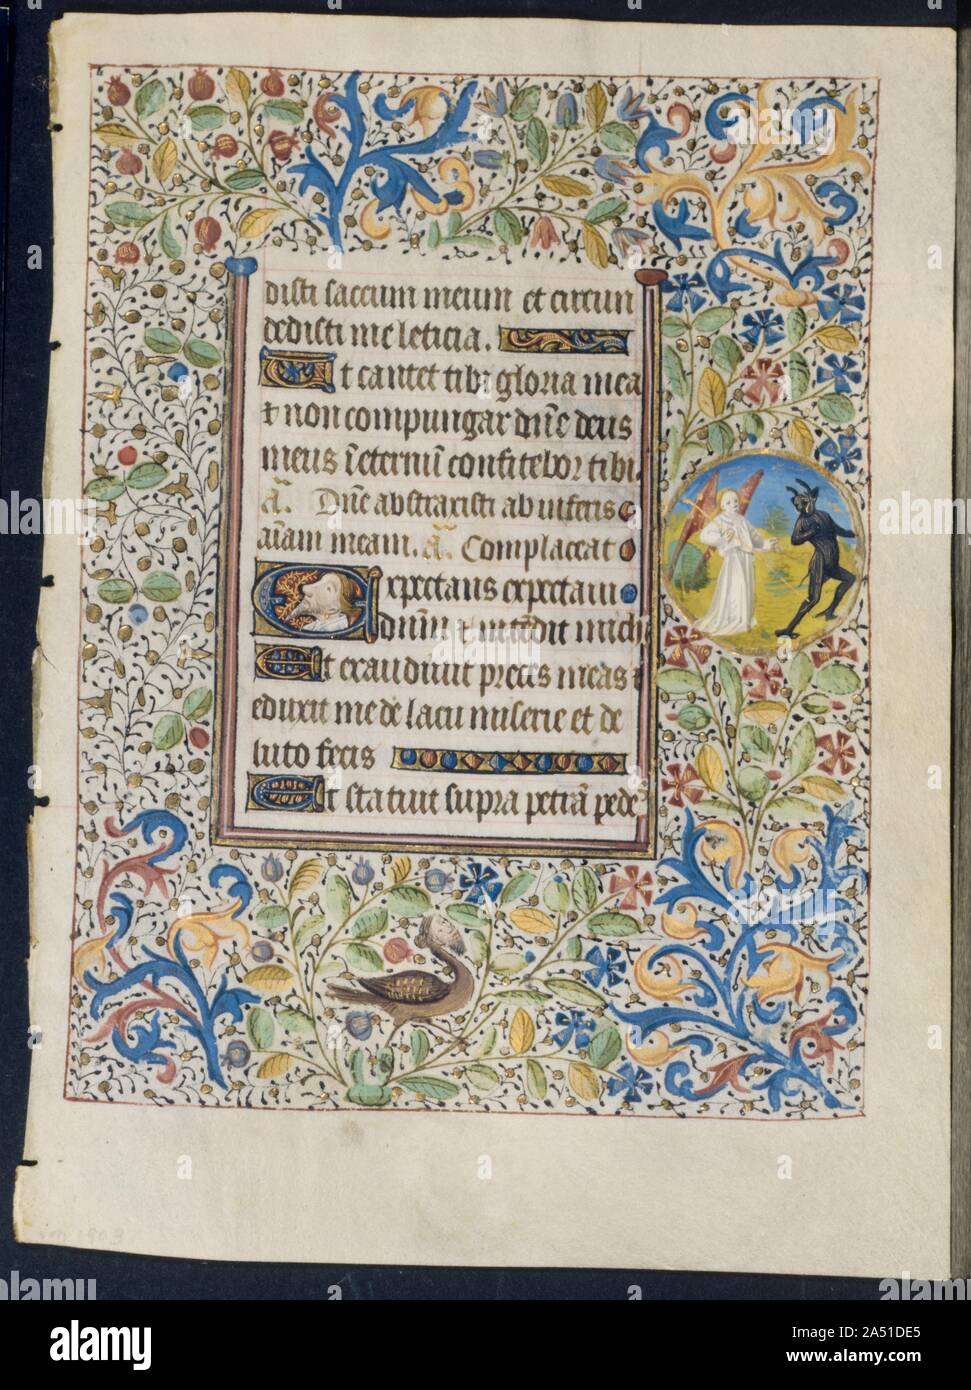 disti saccum meum et circun
dedisti me leticia.
Ut cantet tibi gloria mea
et non compungar dn̄e deus
meus ī eternū confitebor tibi.
A. Dn̄e abstraxisti ab inferis
aīam meam. a. Complaceat
Expectans expectaui
dnūm et intēdit michi
Et exaudiuit preces meas
eduxit me de lacu miserie et de
luto fecis
Et statuit supra petrā pede
alamy
Image ID: 2A51DE5
www.alamy.com